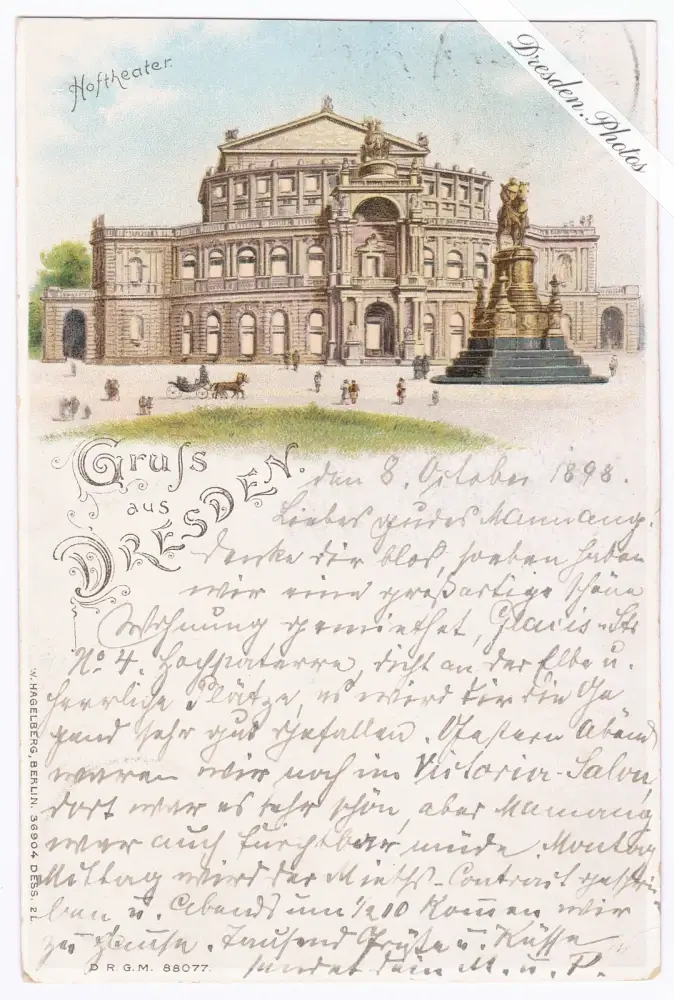 Dresden.Photos
Hoftheater.
Gruss
aus
DRESDEN.
den 8. October 1898.
Liebes gudes Mammang!
denke dir blos, soeben haben
wir eine großartige schöne
Wohnung gemiethet, Glacis-Str
No 4. Hochparterre, dicht an der Elbe u.
herrliche Plätze, es wird dir die Ge
gend sehr gut gefallen. Gestern Abend
waren wir noch im Victoria-Salon,
dort war es sehr schön, aber Mamang
war auch furchtbar müde. Montag
Mittag wird der Mieths-Contract geschrie
ben u. Abends um 1/2 10 Kommen wir
zu Hause. Tausend Grüße u. Küsse
sendet dein M. u. P.
W. HAGELBERG, BERLIN. 36904 DESS. 2 L.
D.R.G.M. 88077.